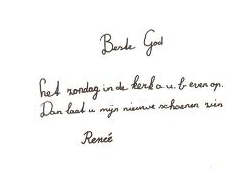 Beste God
Let zondag in de kerk a.u.b even op.
Dan laat u mijn nieuwe schoenen zien
Reneé